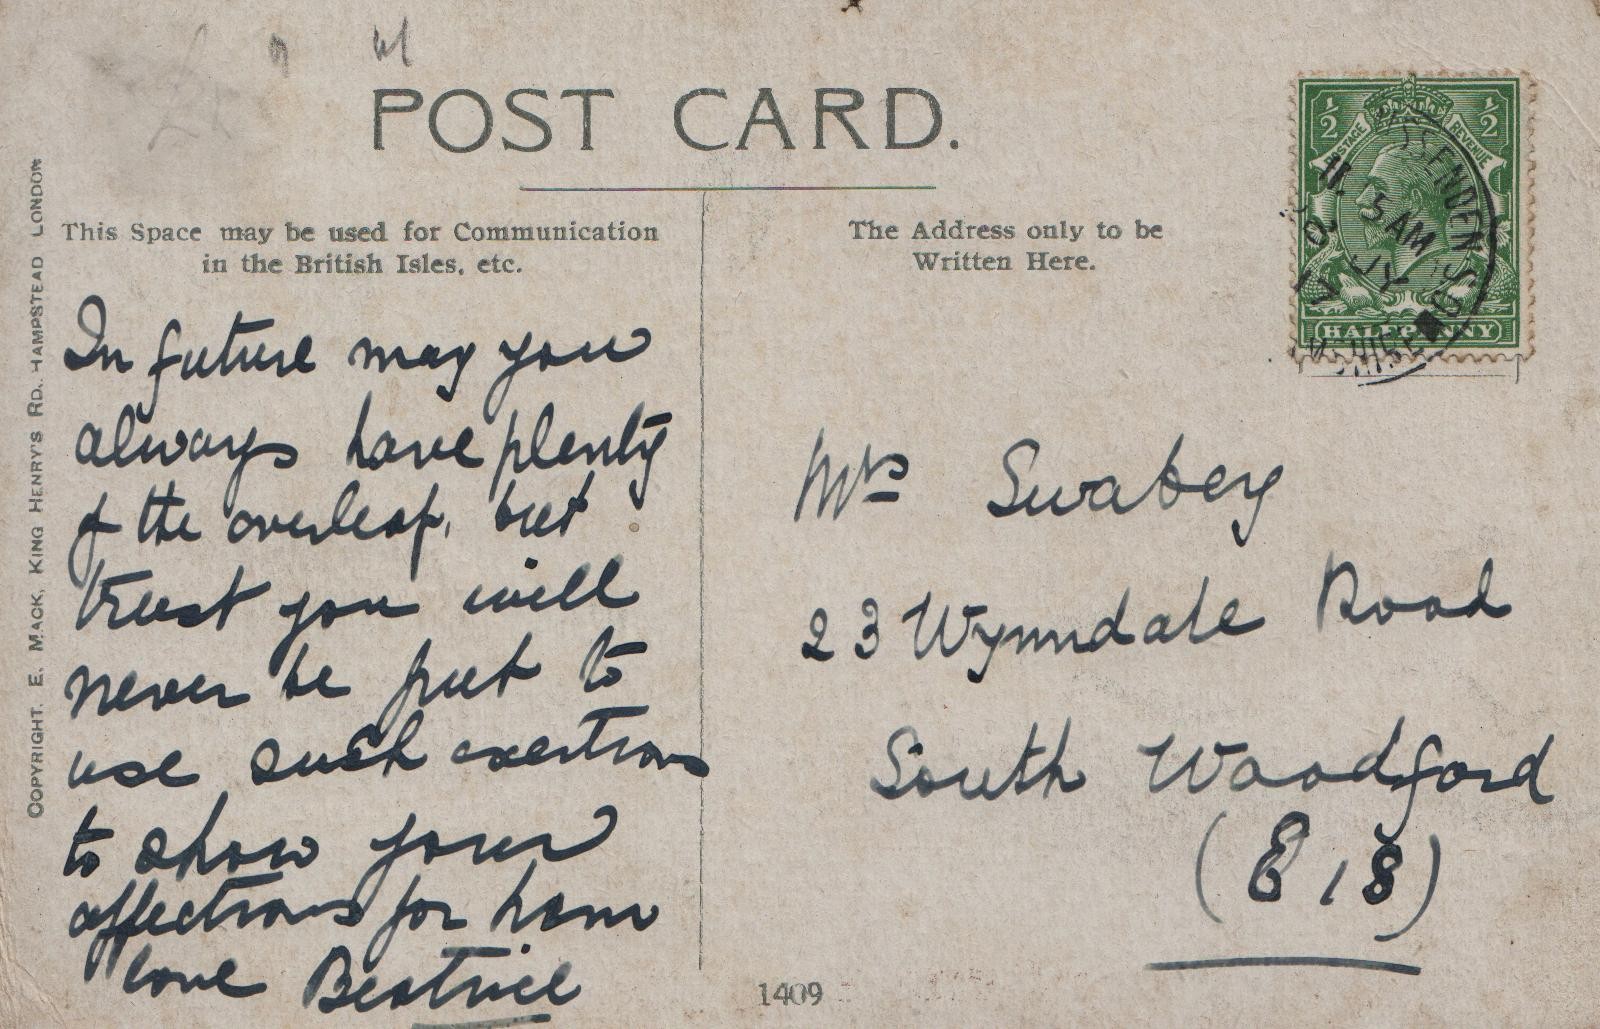 POST CARD.
This Space may be used for Communication
in the British Isles, etc.
The Address only to be
Written Here.
COPYRIGHT. E. MACK, KING HENRY'S RD. HAMPSTEAD LONDON
In future may you
always have plenty
of the overleaf, but
trust you will
never be put to
use such exertions
to show your
affections for ham
love Beatrice
½ ½
POSTAGE REVENUE
HALFPENNY
SSENDEN
5 AM
JY
17
Mrs Swabey
23 Wynndale Road
South Woodford
(E 18)
1409